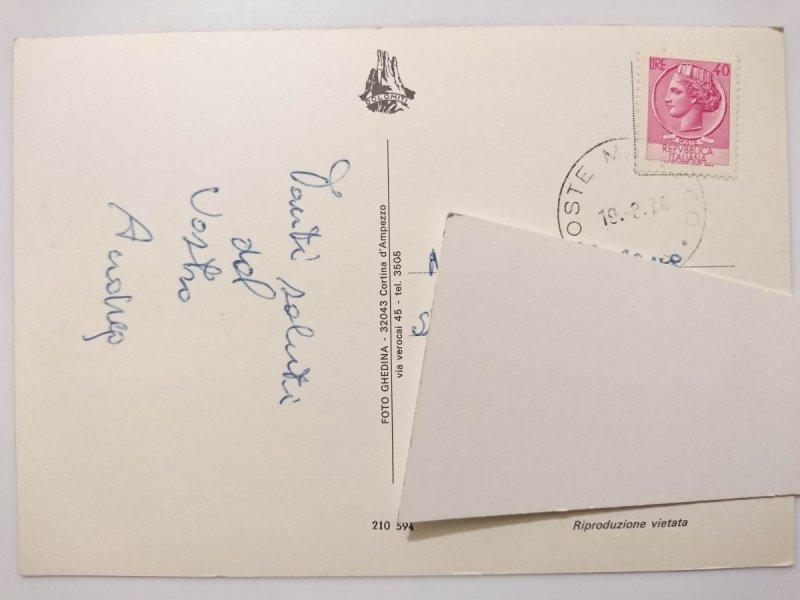 Tanti saluti
dal
Vostro
Andrea
DOLOMITI
FOTO GHEDINA - 32043 Cortina d'Ampezzo
via verocai 45 - tel. 3505
LIRE 40
REPVBBLICA
ITALIANA
19.-2.74
210 594
Riproduzione vietata